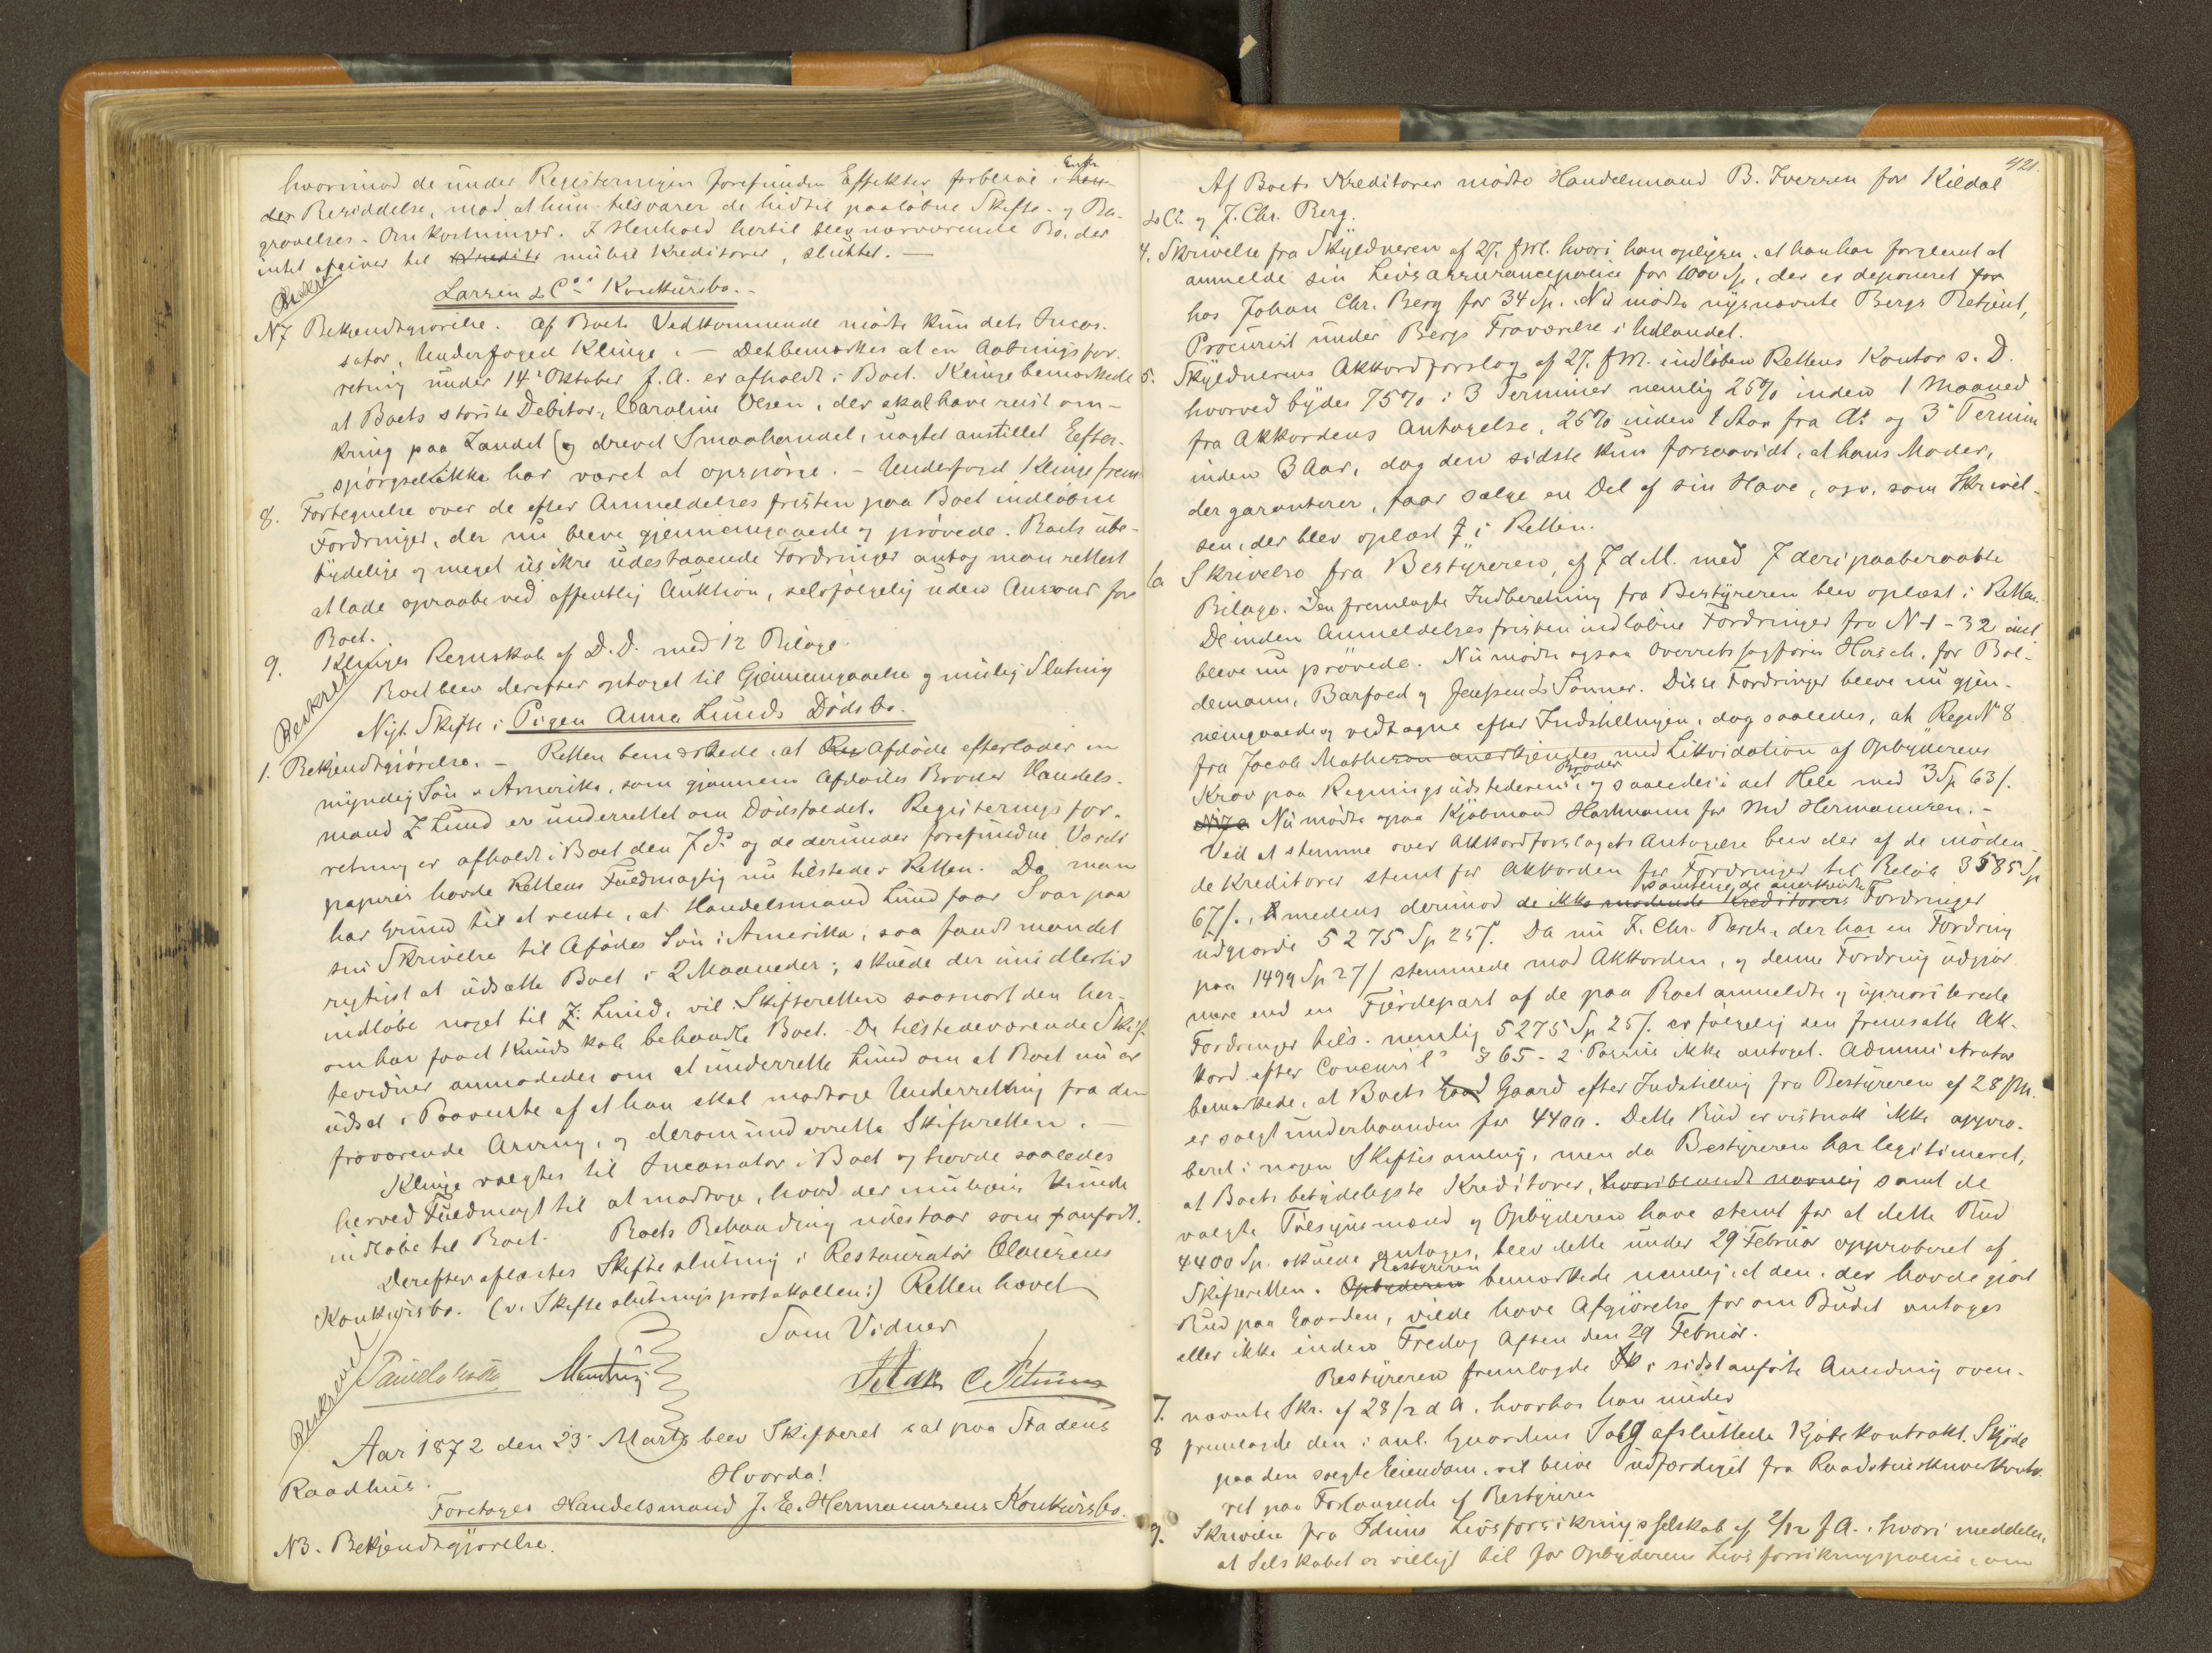 hvorimod de under Registeringen forefunden Effekter forbleve i Enkens
Besiddelse, mod at hun tilsvarer de hidtil paaløbne Skifte- og Be-
gravelses-Omkostninger. I Henhold hertil blev nærværende Bo, der
intet afgiver til mulige Kreditorer, sluttet. —
Beskrevet
Larsen & Co's Konkursbo. -
N7 Bekjendtgjørelse. Af Boets Vedkommende mødte kun dets Incas-
sator, Underfoged Klinge. — Det bemærkes at en Aabningsfor-
retning under 14' Oktober f. A. er afholdt i Boet. Klinge bemærkede
at Boets største Debitor, Caroline Olsen, der skal have reist om-
kring paa Landet og drevet Smaahandel, uagtet anstillet Efter-
spørgsel ikke har været at opspørge. - Underfoged Klinge frem
8. Fortegnelse over de efter Anmeldelsesfristen paa Boet indløbne
Fordringer, der nu bleve gjennemgaaede og prøvede. Boets ube-
tydelige og meget usikre udestaaende Fordringer antog man rettest
at lade opraabe ved offentlig Auktion, selvfølgelig uden Ansvar for
Boet.
9. Klinges Regnskab af D. D. med 12 Bilage.
Boet blev derefter optaget til Gjennemgaaelse og mulig Slutning
Beskrevet
Nyt Skifte i Pigen Anna Lunds Dødsbo.
1. Bekjendtgjørelse. — Retten bemærkede, at Afdøde efterlader en
myndig Søn i Amerika, som gjennem Afdødes Broder Handels-
mand Z Lund er underrettet om Dødsfaldet. Registeringsfor-
retning er afholdt i Boet den 7 ds og de derunder forefundne Værdi
papirer havde Rettens Fuldmægtig nu tilstede i Retten. Da man
har Grund til at vente, at Handelsmand Lund faar Svar paa
sin Skrivelse til Afdødes Søn i Amerika, saa fandt man det
rigtigst at udsætte Boet i 2 Maaneder; skulde der imidlertid
indløbe noget til Z. Lund, vil Skifteretten saasnart den her-
om har faaet Kundskab behandle Boet. De tilstedeværende Skif-
tevidner anmodedes om at underrette Lund om at Boet nu er
udsat i Paavente af at han skal modtage Underretning fra den
fraværende Arving, og derom underrette Skifteretten. —
Klinge valgtes til Incassator i Boet og havde saaledes
herved Fuldmagt til at modtage, hvad der muligens kunde
indløbe til Boet. Boets Behandling udestaar som anført.
Derefter aflæstes Skifteslutning i Restauratør Clausens
Konkursbo. (v. Skifteslutningsprotokollen:) Retten hævet
Som Vidner
Beskrevet
Aar 1872 den 23' Marts blev Skifteret sat paa Stadens
Raadhus. Hvorda!
Foretoges Handelsmand J. E. Hermannsens Konkursbo.
N3. Bekjendtgjørelse.
421.
Af Boets Kreditorer mødte Handelsmand B. Iversen for Kildal
& Co. og J. Chr. Berg.
4. Skrivelse fra Skyldneren af 27. f.M. hvori han oplyser, at han har forglemt at
anmelde sin Livsassurancepolice for 1000 Sp, der er deponeret for
hos Johan Chr. Berg for 34 Sp. Nu mødte nysnævnte Bergs Betjent,
Procurist under Bergs Fraværelse i Udlandet.
5. Skyldnerens Akkordforslag af 27. f.M. indløben Rettens Kontor s. D.
hvorved bydes 75% i 3 Terminer nemlig 25% inden 1 Maaned
fra Akkordens Antagelse, 25% inden 1 Aar fra do og 3' Termin
inden 3 Aar, dog den sidste kun forsaavidt, at hans Moder,
der garanterer, faar sælge en Del af sin Have, osv. som Skrivel-
sen, der blev oplæst i Retten.
6a Skrivelse fra Bestyreren, af 7 d.M. med 7 deri paaberaabte
Bilage. Den fremlagte Indberetning fra Bestyreren blev oplæst i Retten.
De inden Anmeldelsesfristen indløbne Fordringer fra N 1-32 incl.
bleve nu prøvede. Nu mødte ogsaa Overretssagfører Horsch, for Bol-
demann, Barfoed og Jenssen & Sønner. Disse Fordringer bleve nu gjen-
nemgaaede og vedtagne efter Indstillingen, dog saaledes, at Regn. N 8
fra Jacob Mathesen anerkjendtes med Likvidation af Opbyderens
Krav paa Regningsudstederens Broder og saaledes i det Hele med 3 Sp 63 s.
Nu mødte ogsaa Kjøbmand Hartmann for Md Hermannsen. -
Ved at stemme over Akkordforslagets Antagelse blev der af de møden-
de Kreditorer stemt for Akkorden for Fordringer til Beløb 3585 Sp
67 s., medens derimod samtlige de anerkjendte Fordringer
udgjorde 5275 Sp 25 s. Da nu J. Chr. Berg, der har en Fordring
paa 1499 Sp 27 s stemmede mod Akkorden, og denne Fordring udgjør
mere end en Fjerdepart af de paa Boet anmeldte og uprioriterede
Fordringer tils. nemlig 5275 Sp 25 s. er følgelig den fremsatte Ak-
kord efter Concursl's § 65 - 2' Passus ikke antaget. Administrator
bemærkede, at Boets Gaard efter Indstilling fra Bestyreren af 28 f.M.
er solgt underhaanden for 4400. Dette Bud er vistnok ikke appro-
beret i nogen Skiftesamling, men da Bestyreren har legitimeret,
at Boets betydeligste Kreditorer, samt de
valgte Tilsynsmænd og Opbyderen have stemt for at dette Bud
4400 Sp. skulde antages, blev dette under 29 Februar approberet af
Skifteretten. Bestyreren bemærkede nemlig, at den, der havde gjort
Bud paa Gaarden, vilde have Afgjørelse for om Budet antages
eller ikke inden Fredag Aften den 29 Februar.
Bestyreren fremlagde i sidstanførte Anledning oven-
7. nævnte Skr. af 28/2 d A, hvorhos han under
8 fremlagde den i anl. Gaardens Salg afsluttede Kjøbekontrakt. Skjøde
paa den solgte Eiendom vil blive udfærdiget fra Raadstueskriverkonto-
ret paa Forlangende af Bestyreren
9. Skrivelse fra Iduns Livsforsikringsselskab af 2/12 f A. hvori meddeles,
at Selskabet er villigt til for Opbyderens Livsforsikringspolice, om